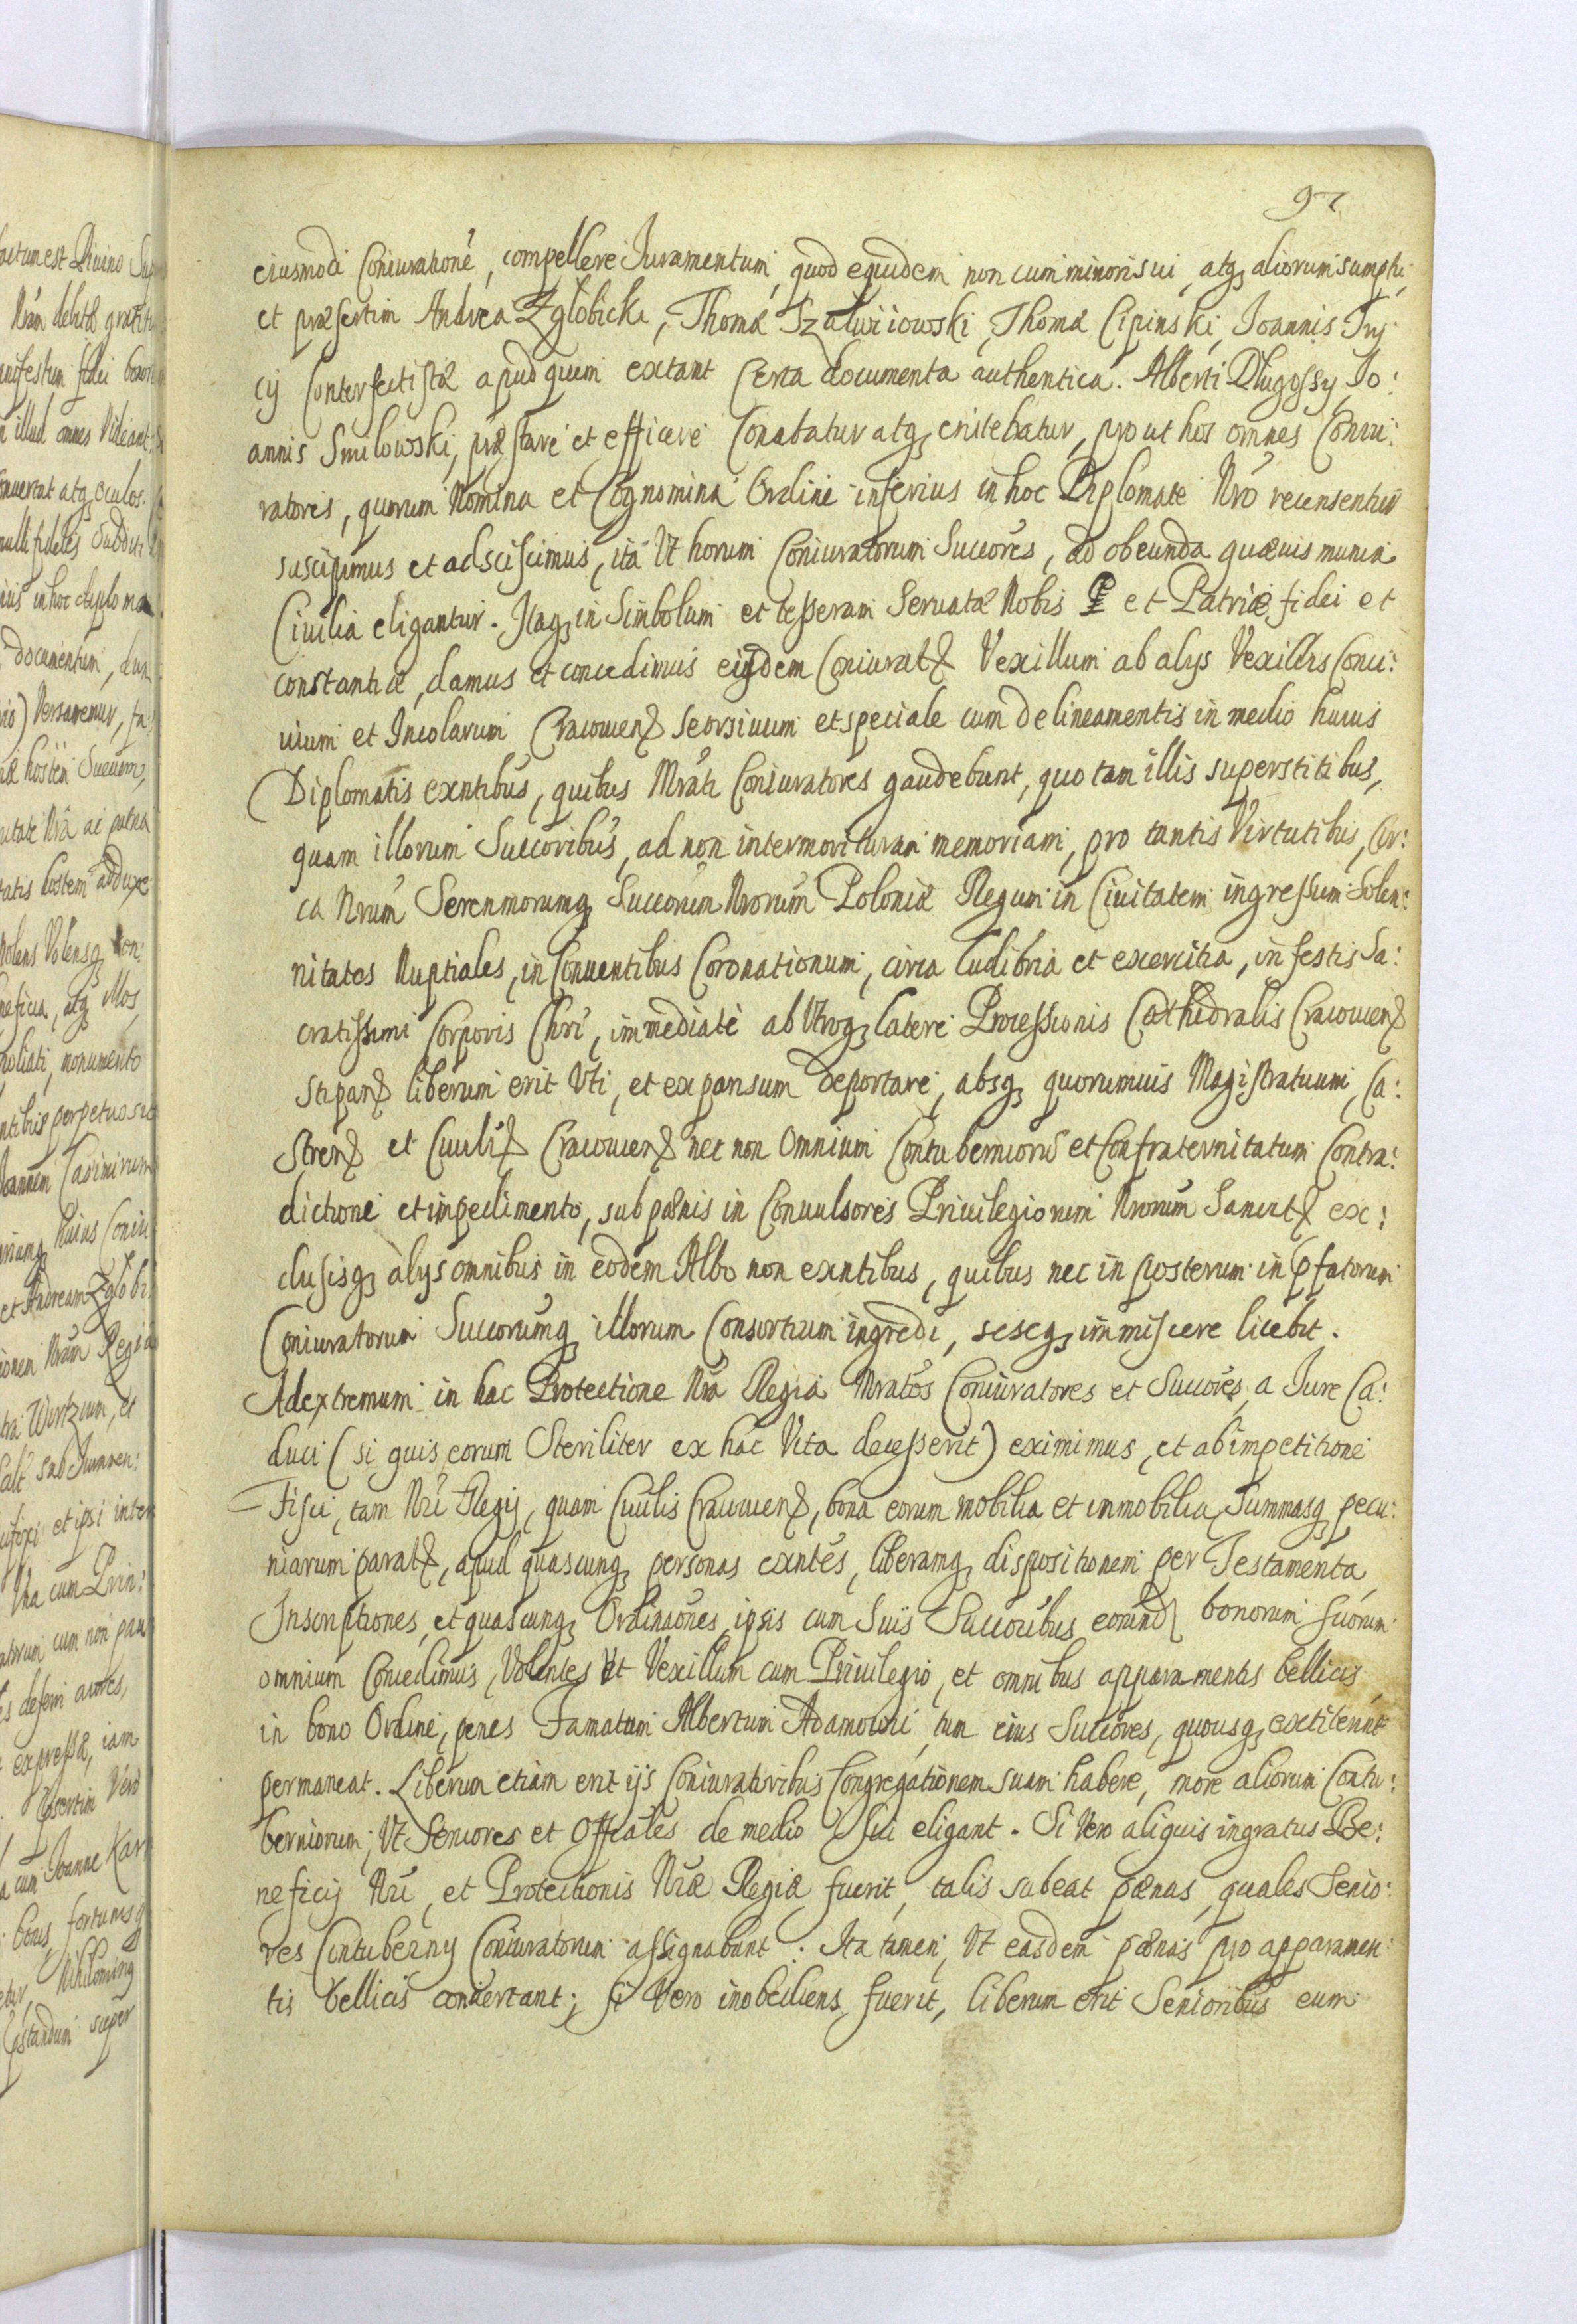 97
eiusmodi Coniuratione, compellere Iuramentum, quod equidem non cum minori sui, atq aliorum sumptu,
et præsertim Andrea Zglobicki, Thomæ Szaluiiowski, Thomæ Cipinski, Ioannis Try
cij Conterfectistæ apud quem extant Certa documenta authentica. Alberti Długossy, Io:
annis Smilowski, præstare et efficere Conabatur atq enitebatur, prout hos omnes Coniu:
ratores, quorum Nomina et Cognomina Ordine inferius in hoc Diplomate Nro recensentur
suscipimus et adsciscimus, ita Vt horum Coniuratorum Succores, ad obeunda quæuis munia
Ciuilia eligantur. Itaq in Simbolum et tesseram Seruatæ Nobis et Patriæ fidei et
constantiæ, damus et concedimus eisdem Coniurat Vexillum ab alys Vexillis Conci:
uium et Incolarum Cracouien seorsiuum et speciale cum delineamentis in medio huius
Diplomatis exntibus, quibus Mrati Coniuratores gaudebunt, quo tam illis superstitibus,
quam illorum Succoribus, ad non intermorituram memoriam, pro tantis Virtutibus, Cir:
ca Nrum Serenmorumq Succorum Nrorum Poloniæ Regum in Ciuitatem ingressum Solen:
nitates Nuptiales, in Conuentibus Coronationum, circa ludibria et exercitia, in festis Sa:
cratissimi Corporis Chri, immediate ab Vtroq latere Processionis Cathedralis Cracouien
stipan liberum erit Vti, et expansum deportare, absq quorumuis Magistratuum, Ca:
stren et Ciuili Cracouien nec non Omnium Contuberniorum et Confraternitatum Contra:
dictione et impedimento, sub pænis in Conuulsores Priuilegiorum Nrorum Sancit ex:
clusisq alys omnibus in eodem Albo non exntibus, quibus nec in posterum in pfatorum
Coniuratorum Succorumq illorum Consortium ingredi, seseq immiscere licebit.
Ad extremum in hac Protectione Nra Regia Mratos Coniuratores et Succores, a Iure Ca:
duci (si quis eorum Steriliter ex hac Vita decesserit) eximimus, et ab impetitione
Fisci, tam Nri Regij, quam Ciuilis Cracouien, bona eorum mobilia et immobilia, Summasq pecu:
niarum parat, apud quascunq personas exntes, liberamq dispositionem per Testamenta
Inscriptiones, et quascunq Ordinaones, ipsis cum Suis Succoribus eorund bonorum suorum
omnium Concedimus, Volentes Vt Vexillum cum Priuilegio, et omnibus apparamentis bellicis
in bono Ordine, penes Famatum Albertum Adamowi, tum eius Succores, quousq extiterint
permaneat. Liberum etiam erit ijs Coniuratoribus Congregationem suam habere, more aliorum Contu:
berniorum; Vt Seniores et Officiales de medio sui eligant. Si Vero aliquis ingratus Be:
neficij Nri, et Protectionis Nræ Regiæ fuerit, talis subeat pænas, quales Senio:
res Contuberny Coniuratorum assignabunt. Ita tamen, Vt easdem pænas pro apparamen:
tis bellicis conuertant; si Vero inobediens fuerit, liberum erit Senioribus eum